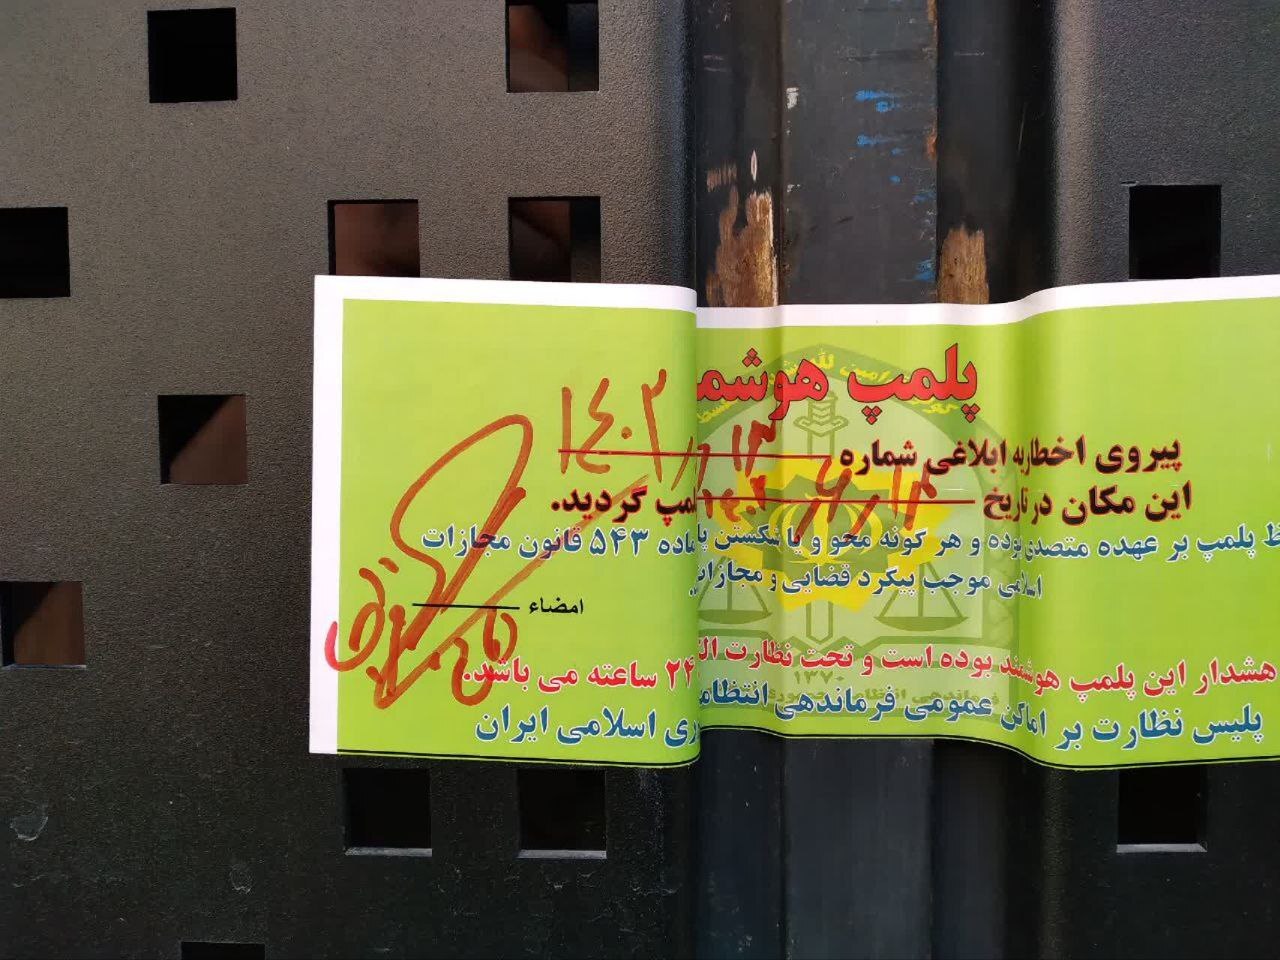 پلمپ هوشمـ
پیروی اخطاریه ابلاغی شماره ۱۴۰۲
این مکان در تاریخ لمپ گردید.
ظ پلمپ بر عهده متصدی بوده و هر گونه محو و یا شکستن پلـ ماده ۵۴۳ قانون مجازات
اسلامی موجب پیگرد قضایی و مجازات
امضاء
هشدار این پلمپ هوشمند بوده است و تحت نظارت الـ ۲۴ ساعته می باشد.
پلیس نظارت بر اماکن عمومی فرماندهی انتظامـ ری اسلامی ایران
۱۳۷۰